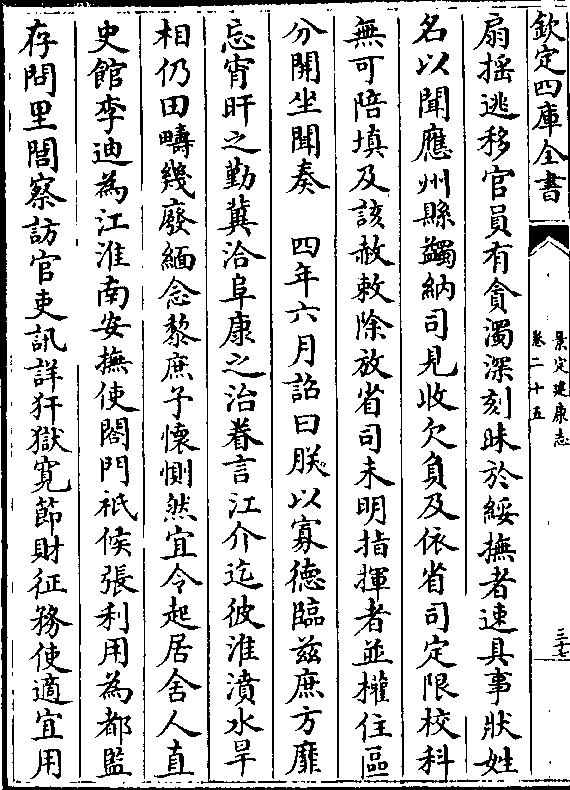 欽定四庫全書
景定建康志
卷二十五
三七
扇搖逃移官員有貪濁深刻昧於綏撫者速具事狀姓
名以聞應州縣蠲納司見收欠負及依省司定限校科
無可陪填及該赦敕除放省司未明指揮者並權住區
分開坐聞奏　四年六月詔曰朕以寡德臨兹庶方靡
忘宵旰之勤冀洽阜康之治眷言江介迄彼淮濆水旱
相仍田疇幾廢緬念黎庶子懷惻然宜令起居舍人直
史館李迪為江淮南安撫使閤門祇候張利用為都監
存問里閭察訪官吏訊詳犴獄寛節財征務使適宜用